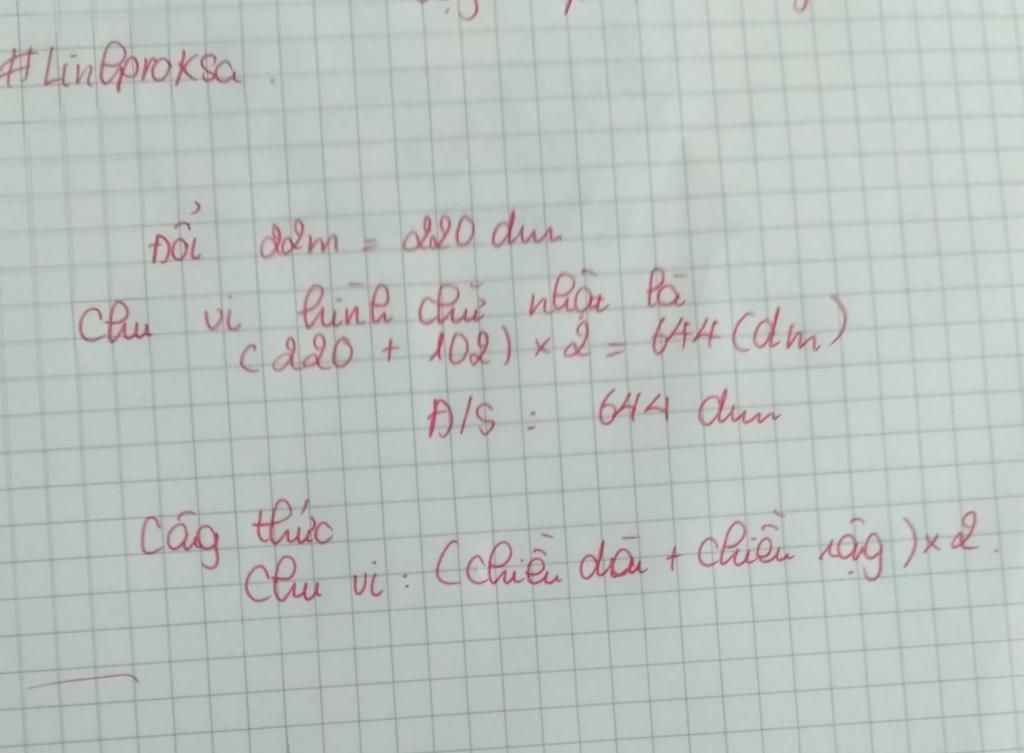 #Linhproksa
Đổi 22m = 220 dm
Chu vi hình chữ nhật là
(220 + 102) × 2 = 644 (dm)
Đ/S : 644 dm
Công thức
Chu vi : (chiều dài + chiều rộng) × 2.